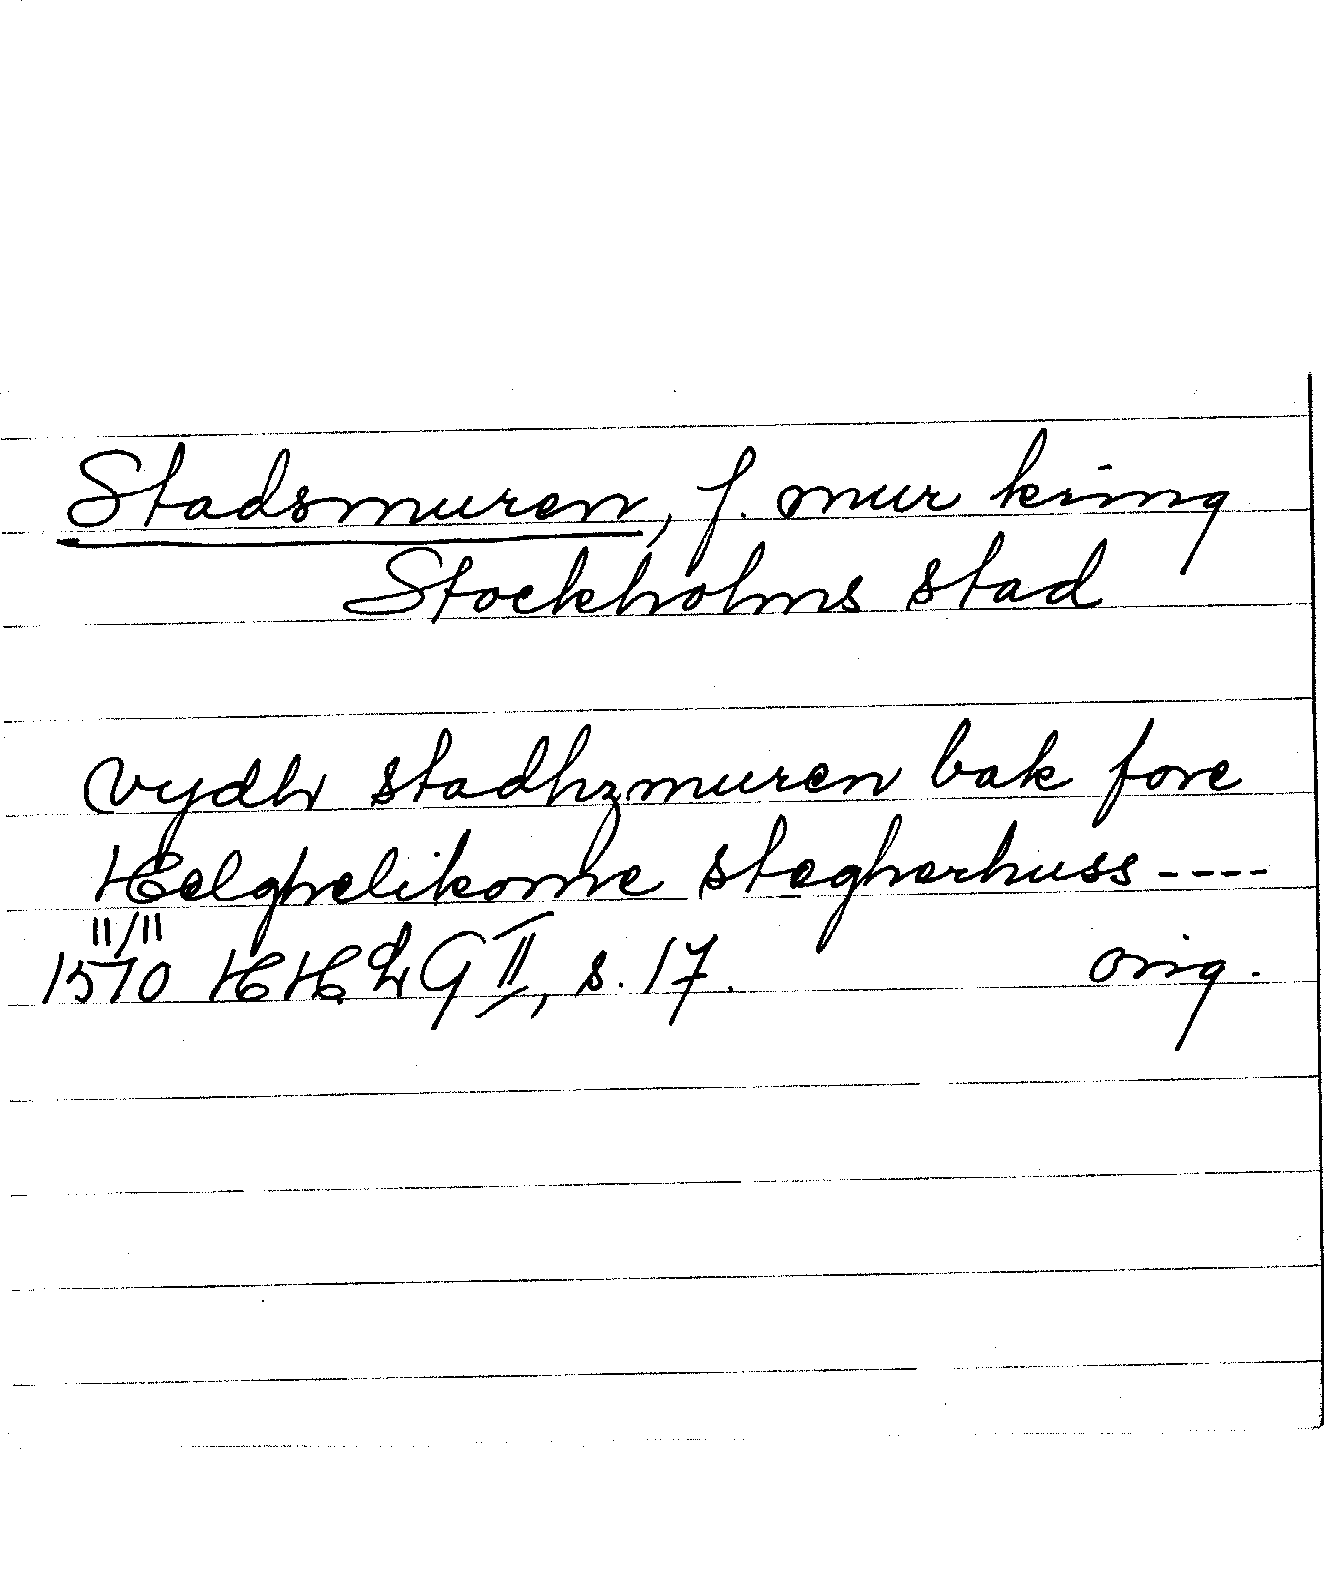 Stadsmuren, f. mur kring
Stockholms stad
vydh stadhzmuren bak fore
Helghelikome stegherhuss ----
11/11
1570 HHLG II, s. 17. orig.